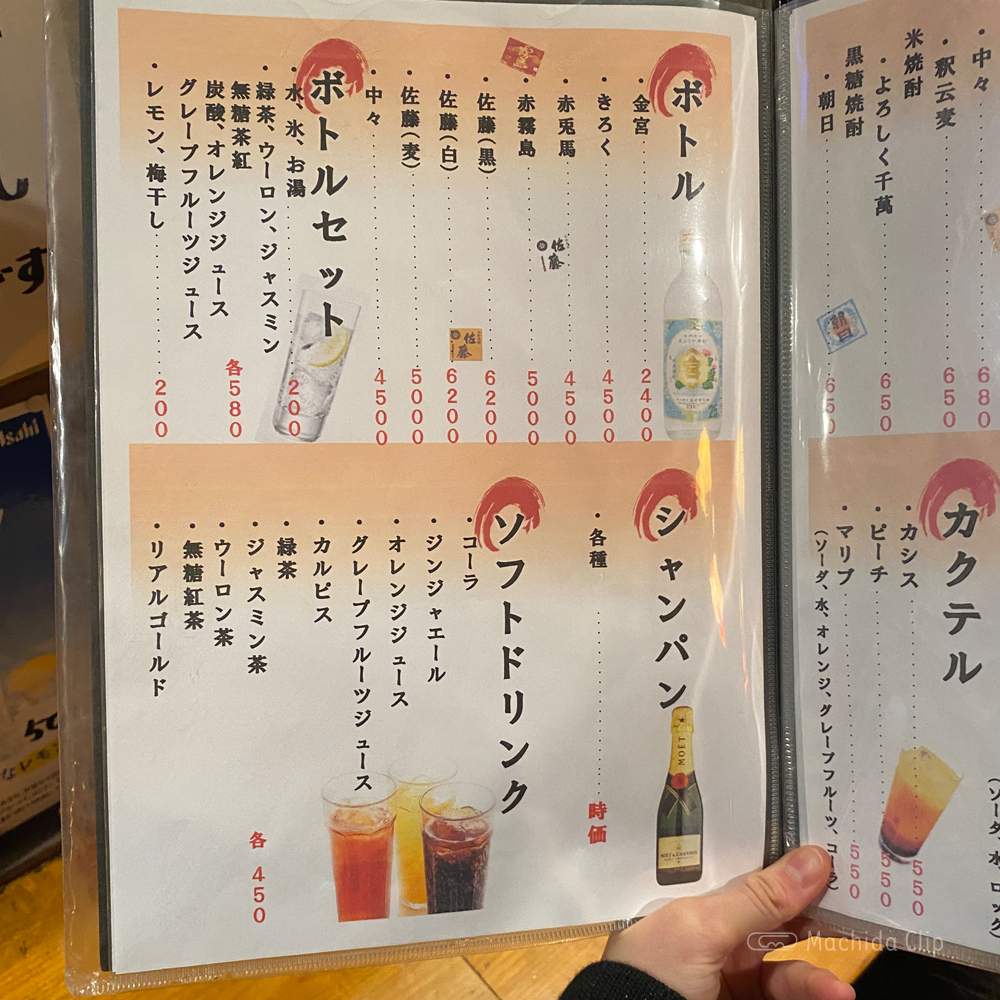 中々 680
・釈云麦 650
米焼酎
・よろしく千萬 650
黒糖焼酎
・朝日 650
ボトル
・金宮 2400
・きろく 4500
・赤兎馬 4500
・赤霧島 5000
・佐藤(黒) 6200
・佐藤(白) 6200
・佐藤(麦) 5000
・中々 4500
ボトルセット
・水、氷、お湯 200
・緑茶、ウーロン、ジャスミン
無糖茶紅
炭酸、オレンジジュース
グレープフルーツジュース
各580
・レモン、梅干し 200
佐藤
佐藤
金宮
カクテル
・カシス 550
・ピーチ 550
・マリブ 550
(ソーダ、水、オレンジ、グレープフルーツ、コーラ)
(ソーダ、水、ロック)
シャンパン
・各種 時価
MOËT
MOËT & CHANDON
ソフトドリンク
・コーラ
・ジンジャエール
・オレンジジュース
・グレープフルーツジュース
・カルピス
・緑茶
・ジャスミン茶
・ウーロン茶
・無糖紅茶
・リアルゴールド
各 450
Asahi
Machida Clip